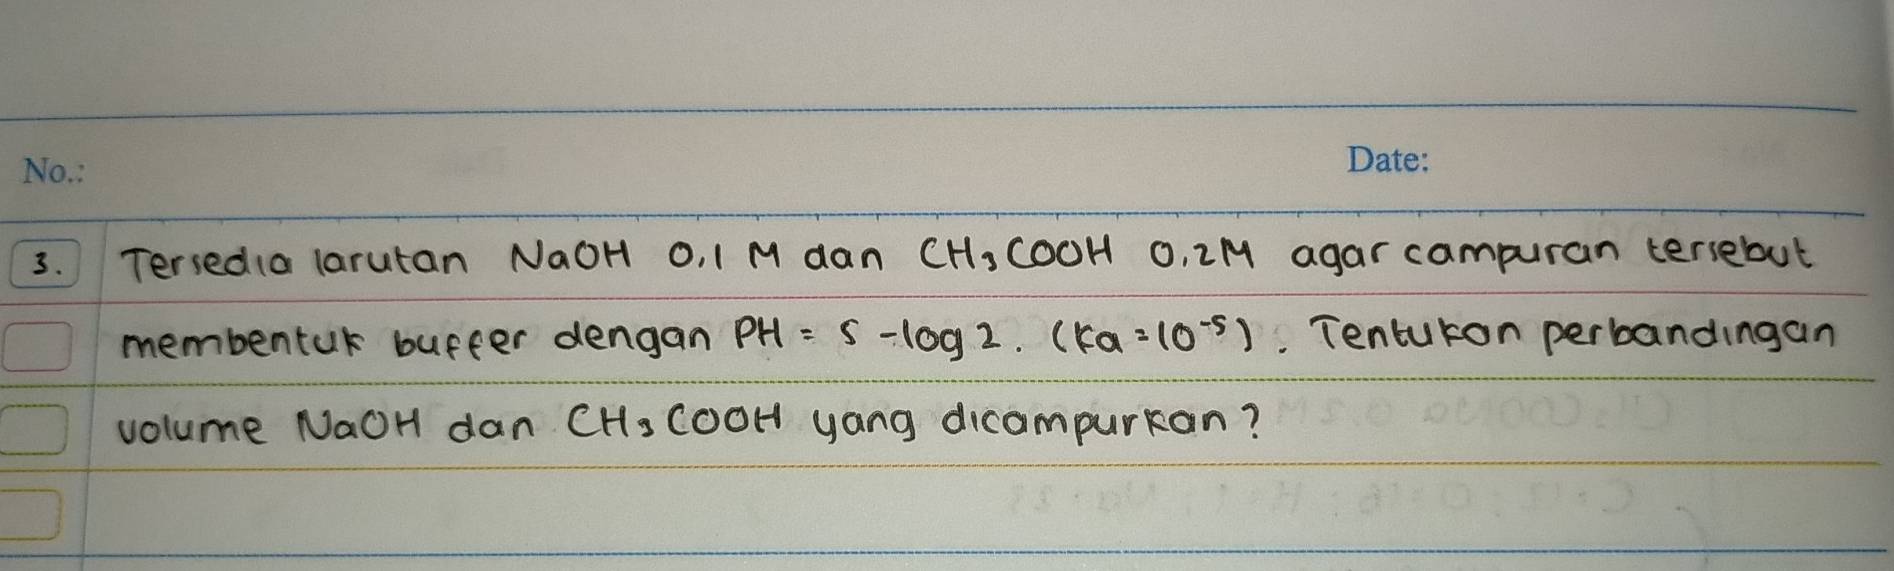 No.:
Date:
3. Tersedia larutan NaOH 0,1 M dan CH₃COOH 0,2M agar campuran tersebut
membentuk buffer dengan PH = 5 -log 2. (Ka = 10⁻⁵). Tentukan perbandingan
volume NaOH dan CH₃COOH yang dicampurkan?